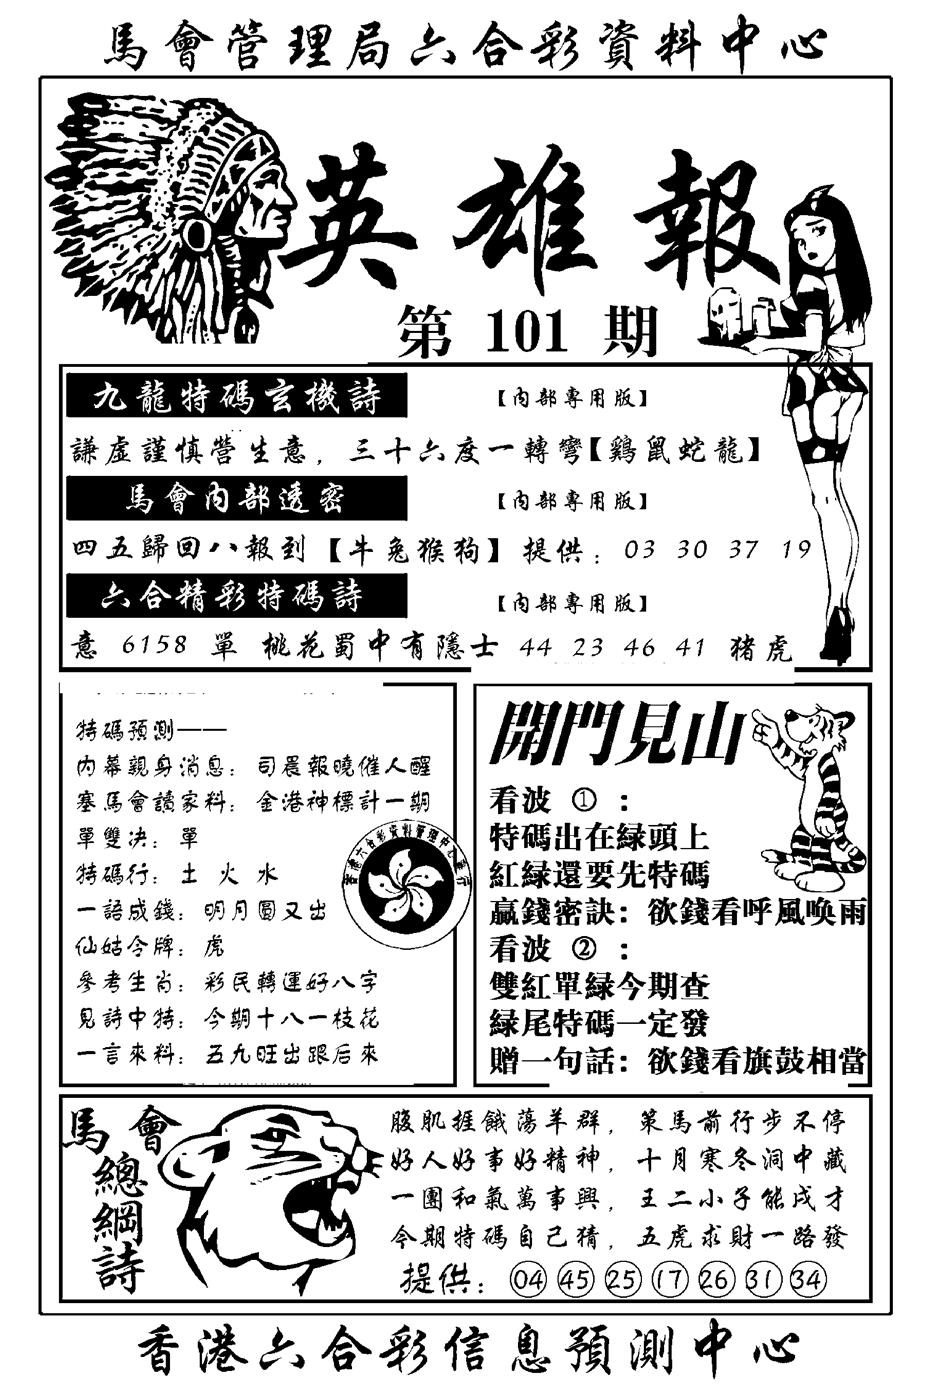 馬會管理局六合彩資料中心
英雄報
第 101 期
九龍特碼玄機詩 【內部專用版】
謙虛謹慎營生意，三十六度一轉彎【鷄鼠蛇龍】
馬會內部透密 【內部專用版】
四五歸回八報到【牛兔猴狗】提供：03 30 37 19
六合精彩特碼詩 【內部專用版】
意 6158 單 桃花蜀中有隱士 44 23 46 41 猪虎
特碼預測——
內幕親身消息：司晨報曉催人醒
塞馬會讀家料：金港神標計一期
單雙决：單
特碼行：土 火 水
一語成錢：明月圓又出
仙姑令牌：虎
參考生肖：彩民轉運好八字
見詩中特：今期十八一枝花
一言來料：五九旺出跟后來
香港六合彩資料管理中心發行
開門見山
看波 ①：
特碼出在緑頭上
紅緑還要先特碼
贏錢密訣：欲錢看呼風唤雨
看波 ②：
雙紅單緑今期查
緑尾特碼一定發
贈一句話：欲錢看旗鼓相當
馬會
總綱詩
腹肌捱餓蕩羊群，策馬前行步不停
好人好事好精神，十月寒冬洞中藏
一團和氣萬事興，王二小子能成才
今期特碼自己猜，五虎求財一路發
提供：04 45 25 17 26 31 34
香港六合彩信息預測中心